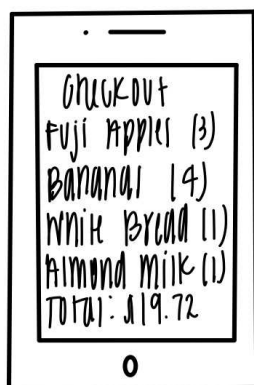 Checkout
Fuji Apples (3)
Bananas (4)
White Bread (1)
Almond Milk (1)
Total: $19.72